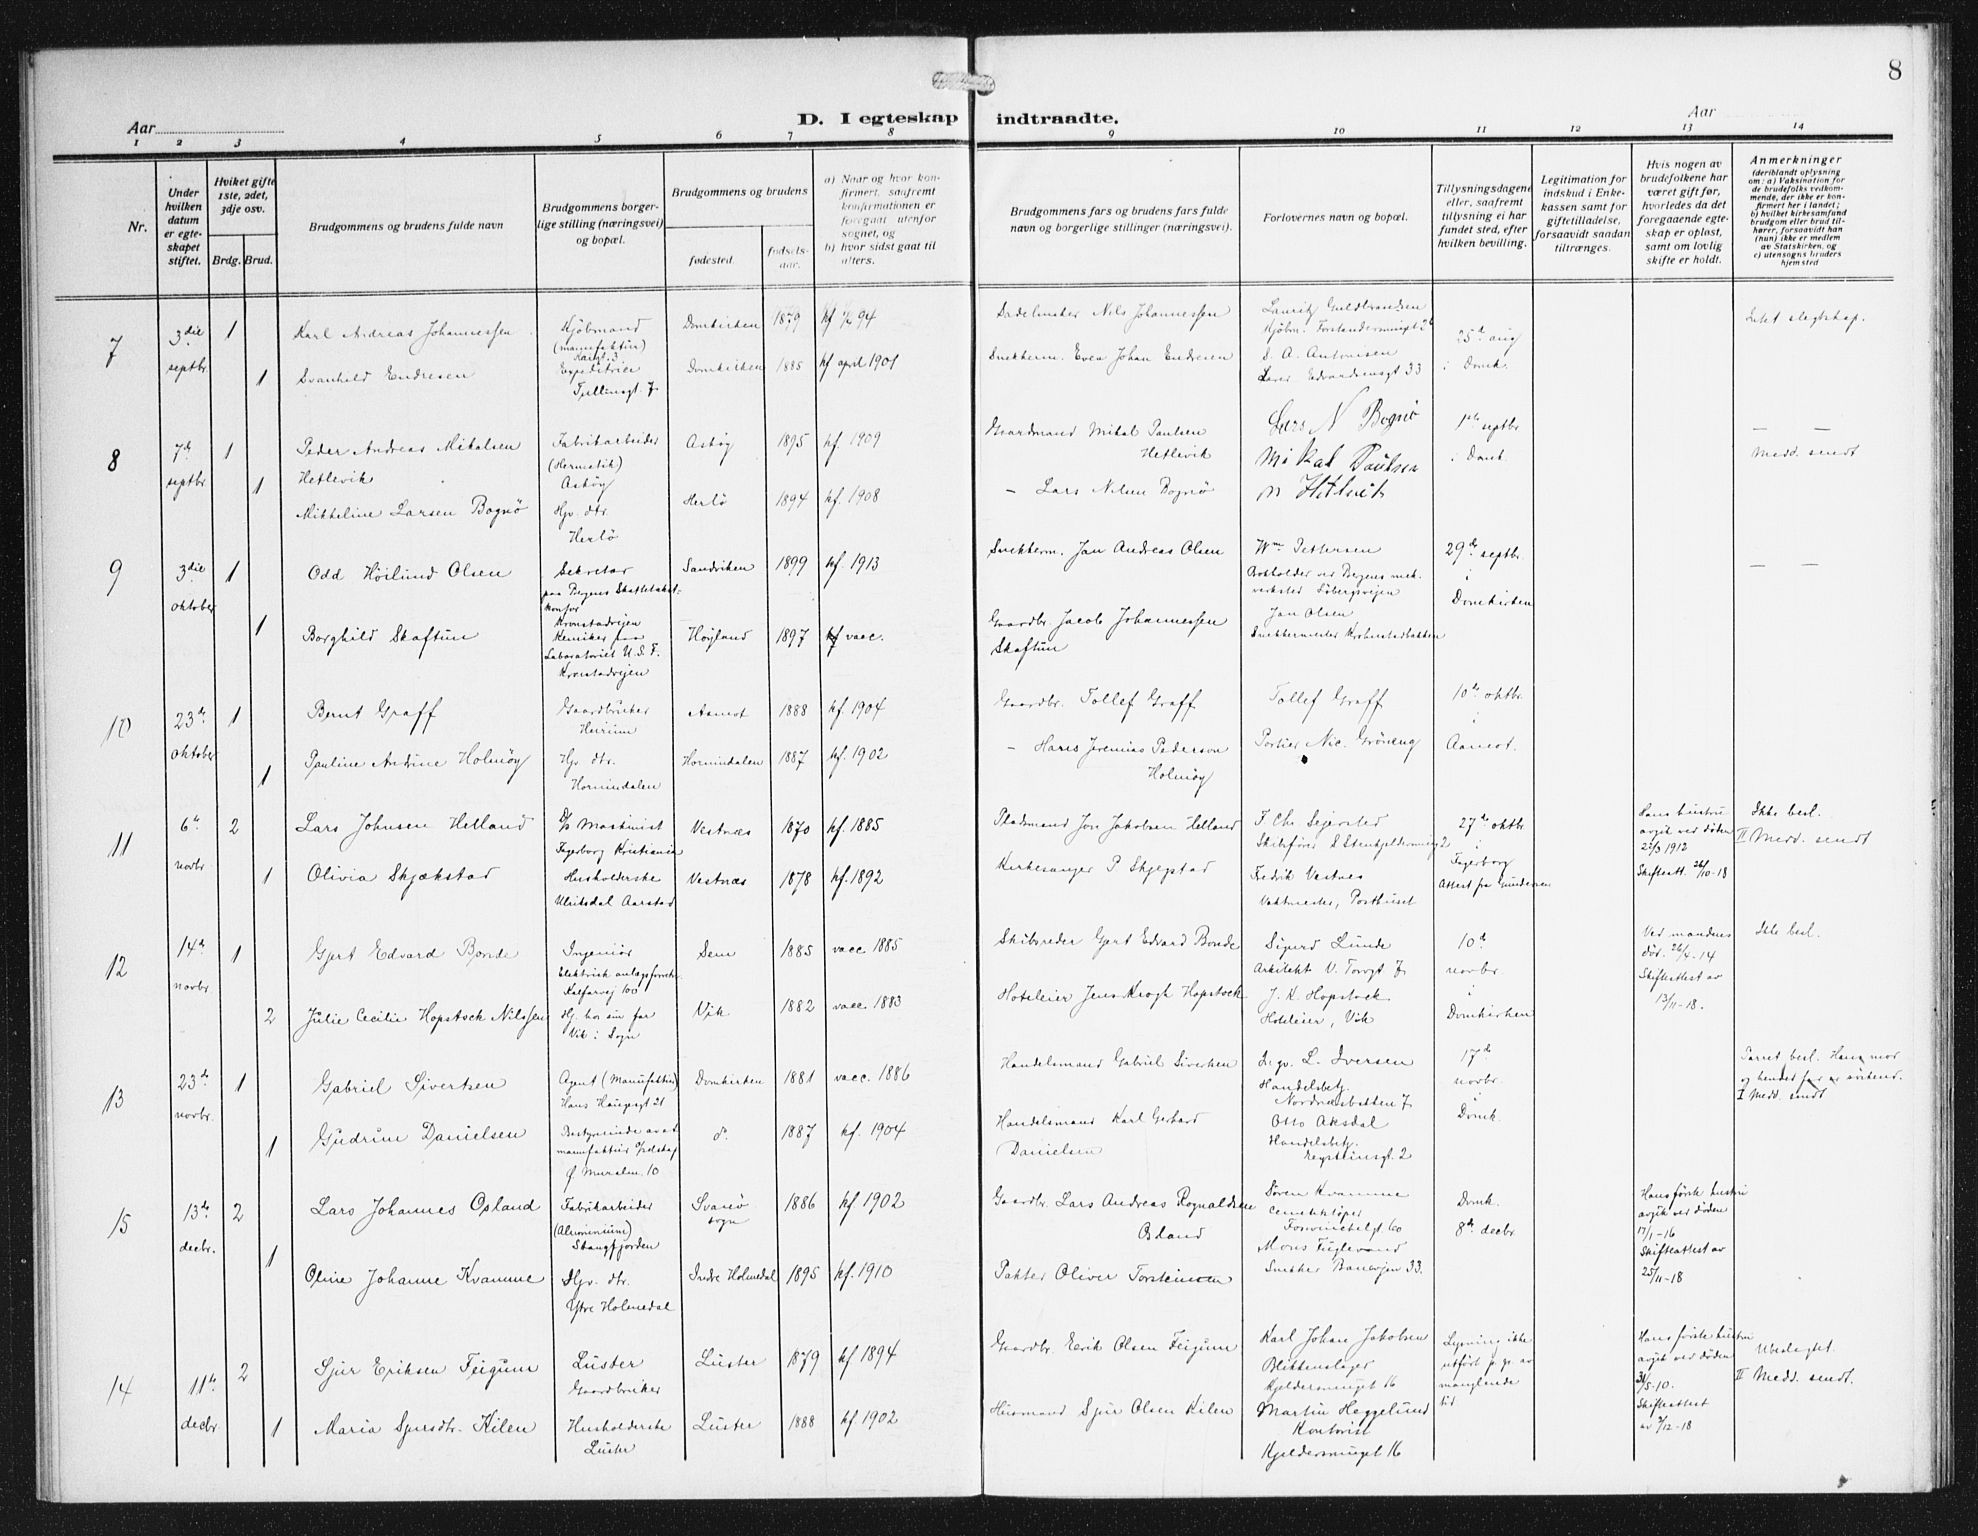 8
D. I egteskap indtraadte.
Aar
Aar
1 2 3 4 5 6 7 8 9 10 11 12 13 14
Nr.
Under hvilken datum er egteskapet stiftet.
Hvilket gifte 1ste, 2det, 3dje osv.
Brdg. Brud.
Brudgommens og brudens fulde navn
Brudgommens borgerlige stilling (næringsvei) og bopæl.
Brudgommens og brudens
fødested.
fødselsaar.
a) Naar og hvor konfirmert, saafremt konfirmationen er foregaat utenfor sognet, og
b) hvor sidst gaat til alters.
Brudgommens fars og brudens fars fulde navn og borgerlige stillinger (næringsvei).
Forlovernes navn og bopæl.
Tillysningsdagene eller, saafremt tillysning ei har fundet sted, efter hvilken bevilling.
Legitimation for indskud i Enkekassen samt for giftetilladelse, forsaavidt saadan tiltrænges.
Hvis nogen av brudefolkene har været gift før, hvorledes da det foregaaende egteskap er opløst, samt om lovlig skifte er holdt.
Anmerkninger
(deriblandt oplysning om: a) Vaksination for de brudefolks vedkommende, der ikke er konfirmert her i landet; b) hvilket kirkesamfund brudgom eller brud tilhører, forsaavidt han (hun) ikke er medlem av Statskirken, og c) utensogns bruders hjemsted
7 3die septbr 1 Karl Andreas Johannessen Kjøbmand (manufaktur) Domkirken 1879 kf 94 Nils Johannessen Lauritz Guldbrandsen 25d aug i Domk. Intet slegtskap.
1 Svanhild Endresen Expeditrice Domkirken 1885 kf april 1901 Snekkerm. Even Johan Endresen S. A. Antonisen 33
8 7d septbr 1 Peder Andreas Mikalsen Hetlevik Fabrikarbeider (Hermetik) Askøy Askøy 1895 kf. 1909 Gaardmand Mikal Paulsen Hetlevik Lars N Bognø 1ste septbr i Domk. — — Medd. sendt
1 Mikkeline Larsen Bognø Hjv. dtr. Herlø Herlø 1894 kf. 1908 — Lars Nilsen Bognø Mikal Paulsen Hetlevik
9 3die oktober 1 Odd Höilund Olsen Sekretær paa Bergens Skattetakst-kontor Kronstadveien Sandviken 1899 kf. 1913 Snekkerm. Jan Andreas Olsen Wm Pettersen Bokholder ved Bergens mek. verksted 29de septbr. i Domkirken — —
1 Borghild Skaftun Kemiker paa Laboratoriet U. S. F. Kronstadveien Høyland 1897 kf vacc. Gaardbr. Jacob Johannessen Skaftun Jan Olsen Snekkermester
10 23de oktober 1 Bernt Graff Gaardbruker 1888 kf. 1904 Gaardbr. Tollef Graff Tollef Graff 10de oktbr. i Aamot.
1 Pauline Andrine Holmöy Hjv. dtr. Hornindalen Hornindalen 1887 kf. 1902 — Hans Jeremias Pederson Holmöy Portier Nic. Gröneng
11 6te novbr 2 Lars Johnsen Helland Maskinist Fagerborg Kristiania Vestnæs 1870 kf. 1885 Pladsmand Jon Jakobsen Helland F Chr Sejersted Skibsfører 27de oktbr i Fagerborg Hans hustru avgik ved døden 1912 Skifteatt. 26/10-18 Ikke besl. II Medd. sendt
1 Olivia Skjækstad Husholderske Ulriksdal Aarstad Vestnæs 1878 kf. 1892 Kirkesanger P Skjegstad Fredrik Vestnes Vaktmester, Posthuset Attest fra Gundersen
12 14de novbr 1 Gjert Edvard Bonde Ingeniør Kalfarvej 100 Sem 1885 vacc. 1885 Skibsreder Gjert Edvard Bonde Sigurd Lunde Arkitekt V. Torvgt 7 10de novbr i Domkirken Ved mandens død. 26/4-14 Skifteattest av 13/11-18. Ikke besl.
2 Julie Cecilie Hopstock Nilssen Hj. hos sin far Vik i Sogn Vik 1882 vacc. 1883 Hoteleier Jens Krogh Hopstock J. K. Hopstock Hoteleier, Vik
13 23de novbr. 1 Gabriel Sivertsen Agent (Manufaktur) Hans Haugesgt 21 Domkirken 1881 vacc. 1886 Handelsmand Gabriel Sivertsen L. Iversen Handelsbetj. Nordnæsbakken 7 17de novbr. i Domk. Parret besl. Hans mor og hendes far er søskend. I Medd. sendt
1 Gudrun Danielsen Bestyrerinde Ø Muralm. 10 do. 1887 kf. 1904 Handelsmand Karl Gerhard Danielsen Otto Aksdal Handelsbetj. 2
15 13de decbr. 2 Lars Johannes Osland Fabrikarbeider (Aluminium) Stangfjorden Svanø sogn 1886 kf 1902 Gaardbr. Lars Andreas Rognaldsen Osland Søren Kvamme 60 Domk. 8de decbr Hans første hustru avgik ved døden 17/1-16 Skifteattest av 25/11-18
1 Oline Johanne Kvamme Hjv. dtr. Ytre Holmedal Indre Holmedal 1895 kf. 1910 Pakter Oliver Torsteinsen Mons Fuglevand Snekker Banevejen 33.
14 11te decbr 2 Sjur Eriksen Feigum Luster Gaardbruker Luster 1879 kf 1894 Gaardbr. Erik Olsen Feigum Karl Johan Jakobsen Blikkenslager Kjeldersmuget 16 Lysning ikke utført p. gr. av manglende tid Hans første hustru avgik ved døden 31/5-10. Skifteattest av 7/12-18 Ubeslegtet. II Medd. sendt.
1 Maria Sjursdtr. Kilen Husholderske Luster Luster 1888 kf. 1902 Husmand Sjur Olsen Kilen Martin Heggelund Kontorist Kjeldersmuget 16